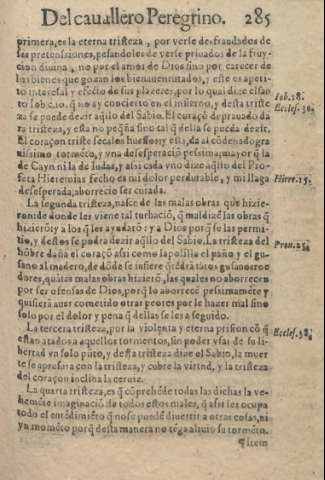 Del cauallero Peregrino. 285
primera, es la eterna tristeza, por verse defraudados de
sus pretensiones, pesandoles de verse priuados de la fruy
cion diuina, no por el amor de Dios sino por carecer de
los bienes que gozan los bienauenturados, y este es apeti-
to interesal y efecto de sus plazeres, por lo qual dize el san
to Iob. c. 10. q̄ no ay concierto en el infierno, y desta triste
za se puede dezir aq̄llo del Sabio. El coraçō deprauado da
ra tristeza, y esta no peq̄ña sino tal q̄ della se pueda dezir.
El coraçon triste seca los huessos; y assi, da al cōdenado gra
uissimo tormēto, y vna desesperaciō pessima; mayor q̄ la
de Cayn ni la de Iudas, y assi cada vno dize aq̄llo del Pro
feta Hieremias fecho es mi dolor perdurable, y mi llaga
desesperada, aborrecio ser curada.
La segunda tristeza, nasce de las malas obras que hizie
ron; de donde les viene tal turbaciō, q̄ maldizē las obras q̄
hizierō; y a los q̄ les ayudarō: y a Dios porq̄ se las permi-
tio, y destos se podra dezir aq̄llo del Sabio. La tristeza del
hōbre daña el coraçō assi como la polilla el paño y el gu-
sano al madero, de dōde se infiere q̄ edarā tātos gusanos ro
dores, quātas malas obras hizierō, las quales no aborrecen
por ser ofensas de Dios, porq̄ lo aborrecē pessimamēte y
quisierā auer cometido otras peores por le hazer mal sino
solo por el dolor y pena q̄ dellas se les a seguido.
La tercera tristeza, por la violenta y eterna prision cō q̄
estan atados a aquellos tormentos, sin poder vsar de su li-
bertad vn solo pūto, y desta tristeza dize el Sabio, la muer
te se apresura con la tristeza, y cubre la virtud, y la tristeza
del coraçon inclina la ceruiz.
La quarta tristeza, es q̄ cōprehēde todas las dichas la ve-
hemēte imaginaciō de todos estos males, q̄ assi les ocupa
todo el entēdimiēto q̄ no se puedē diuertir a otras cosas, ni
vn momēto porq̄ desta manera no tēga aliuio su tormēto.
¶ Item
Iob. 18.
Eccles. 36.
Hiere. 15.
Prou. 25.
Eccles. 38.